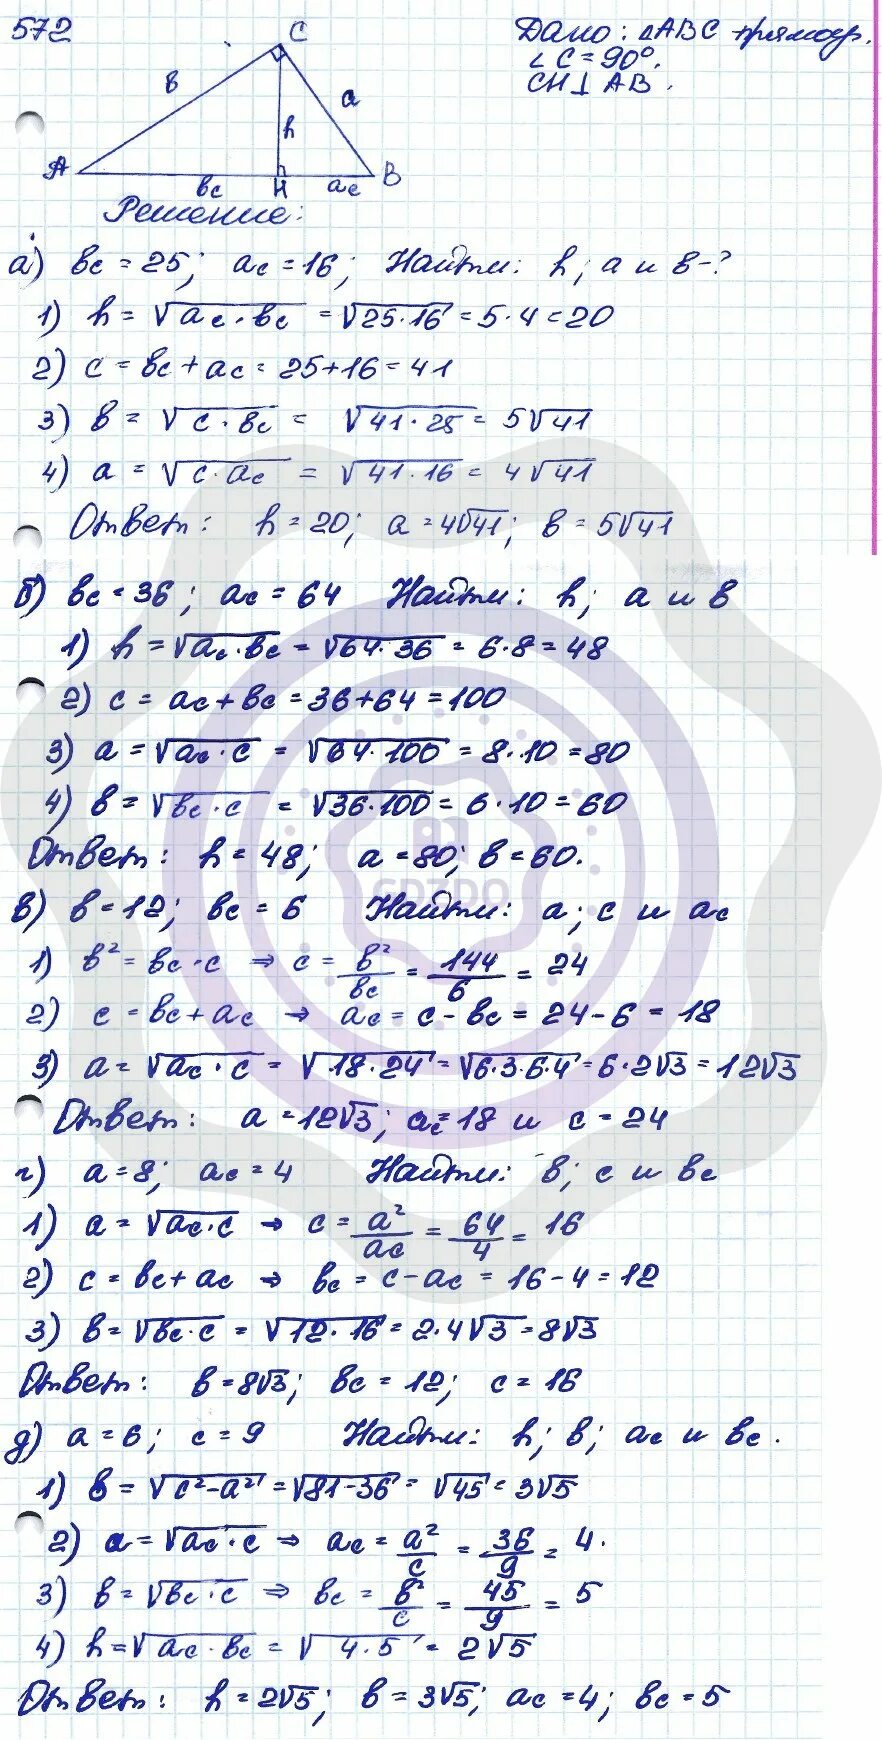 572
Дано: △ABC прямоуг.
∠C=90°.
CH⊥AB.
C
в
a
h
A
B
вc
H
ac
Решение:
а) вc = 25; ac = 16; Найти: h; a и в-?
1) h = √(ac·вc) = √(25·16) = 5·4 = 20
2) c = вc + ac = 25+16 = 41
3) в = √(c·вc) = √(41·25) = 5√41
4) a = √(c·ac) = √(41·16) = 4√41
Ответ: h = 20; a = 4√41; в = 5√41
б) вc = 36; ac = 64 Найти: h; a и в
1) h = √(ac·вc) = √(64·36) = 6·8 = 48
2) c = ac + вc = 36+64 = 100
3) a = √(ac·c) = √(64·100) = 8·10 = 80
4) в = √(вc·c) = √(36·100) = 6·10 = 60
Ответ: h = 48; a = 80; в = 60.
GDZDO
в) в = 12; вc = 6 Найти: a; c и ac
1) в² = вc·c ⇒ c = в²/вc = 144/6 = 24
2) c = вc + ac ⇒ ac = c - вc = 24 - 6 = 18
3) a = √(ac·c) = √(18·24) = √(6·3·6·4) = 6·2√3 = 12√3
Ответ: a = 12√3; ac = 18 и c = 24
г) a = 8; ac = 4 Найти: в; c и вc
1) a = √(ac·c) ⇒ c = a²/ac = 64/4 = 16
2) c = вc + ac ⇒ вc = c - ac = 16 - 4 = 12
3) в = √(вc·c) = √(12·16) = 2·4√3 = 8√3
Ответ: в = 8√3; вc = 12; c = 16
д) a = 6; c = 9 Найти: h; в; ac и вc.
1) в = √(c²-a²) = √(81-36) = √45 = 3√5
2) a = √(ac·c) ⇒ ac = a²/c = 36/9 = 4.
3) в = √(вc·c) ⇒ вc = в²/c = 45/9 = 5
4) h = √(ac·вc) = √(4·5) = 2√5
Ответ: h = 2√5; в = 3√5; ac = 4; вc = 5